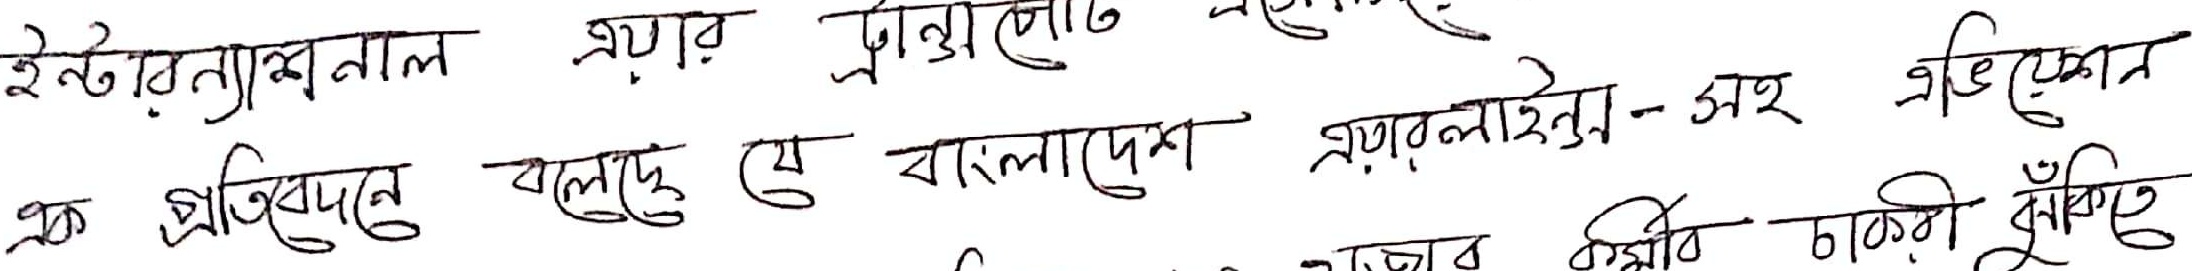 ইন্টারন্যাশনাল এয়ার ট্রান্সপোর্ট
এক প্রতিবেদনে বলেছে যে বাংলাদেশ এয়ারলাইন্স-সহ এভিয়েশন
হাজার কর্মীর চাকরী ঝুঁকিতে